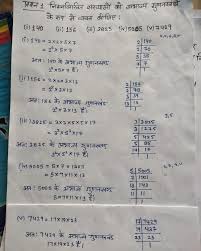 प्रश्न 1 निम्नलिखित संख्याओं को अभाज्य गुणनखंडों
के रूप में व्यक्त कीजिए:
(i) 140 (ii) 156 (iii) 3825 (iv) 5005 (v) 7429
(i) 140 = 2×2×5×7
= 2²×5×7
अतः 140 के अभाज्य गुणनखण्ड
2²×5×7 है।
2 140
2 70
5 35
7 7
1
(ii) 156 = 2×2×3×13
= 2²×3×13
अतः 156 के अभाज्य गुणनखण्ड
2²×3×13 है।
2 156
2 78
3 39
13 13
1
(iii) 3825 = 3×3×5×5×17
= 3²×5²×17
अतः 3825 के अभाज्य गुणनखण्ड
3²×5²×17 है।
3 3825
3 1275
5 425
5 85
17 17
1
(iv) 5005 = 5×7×11×13
अतः 5005 के अभाज्य गुणनखण्ड
5×7×11×13 है।
5 5005
7 1001
11 143
13 13
1
(v) 7429 = 17×19×23
अतः 7429 के अभाज्य गुणनखण्ड
17×19×23 है।
17 7429
19 437
23 23
1